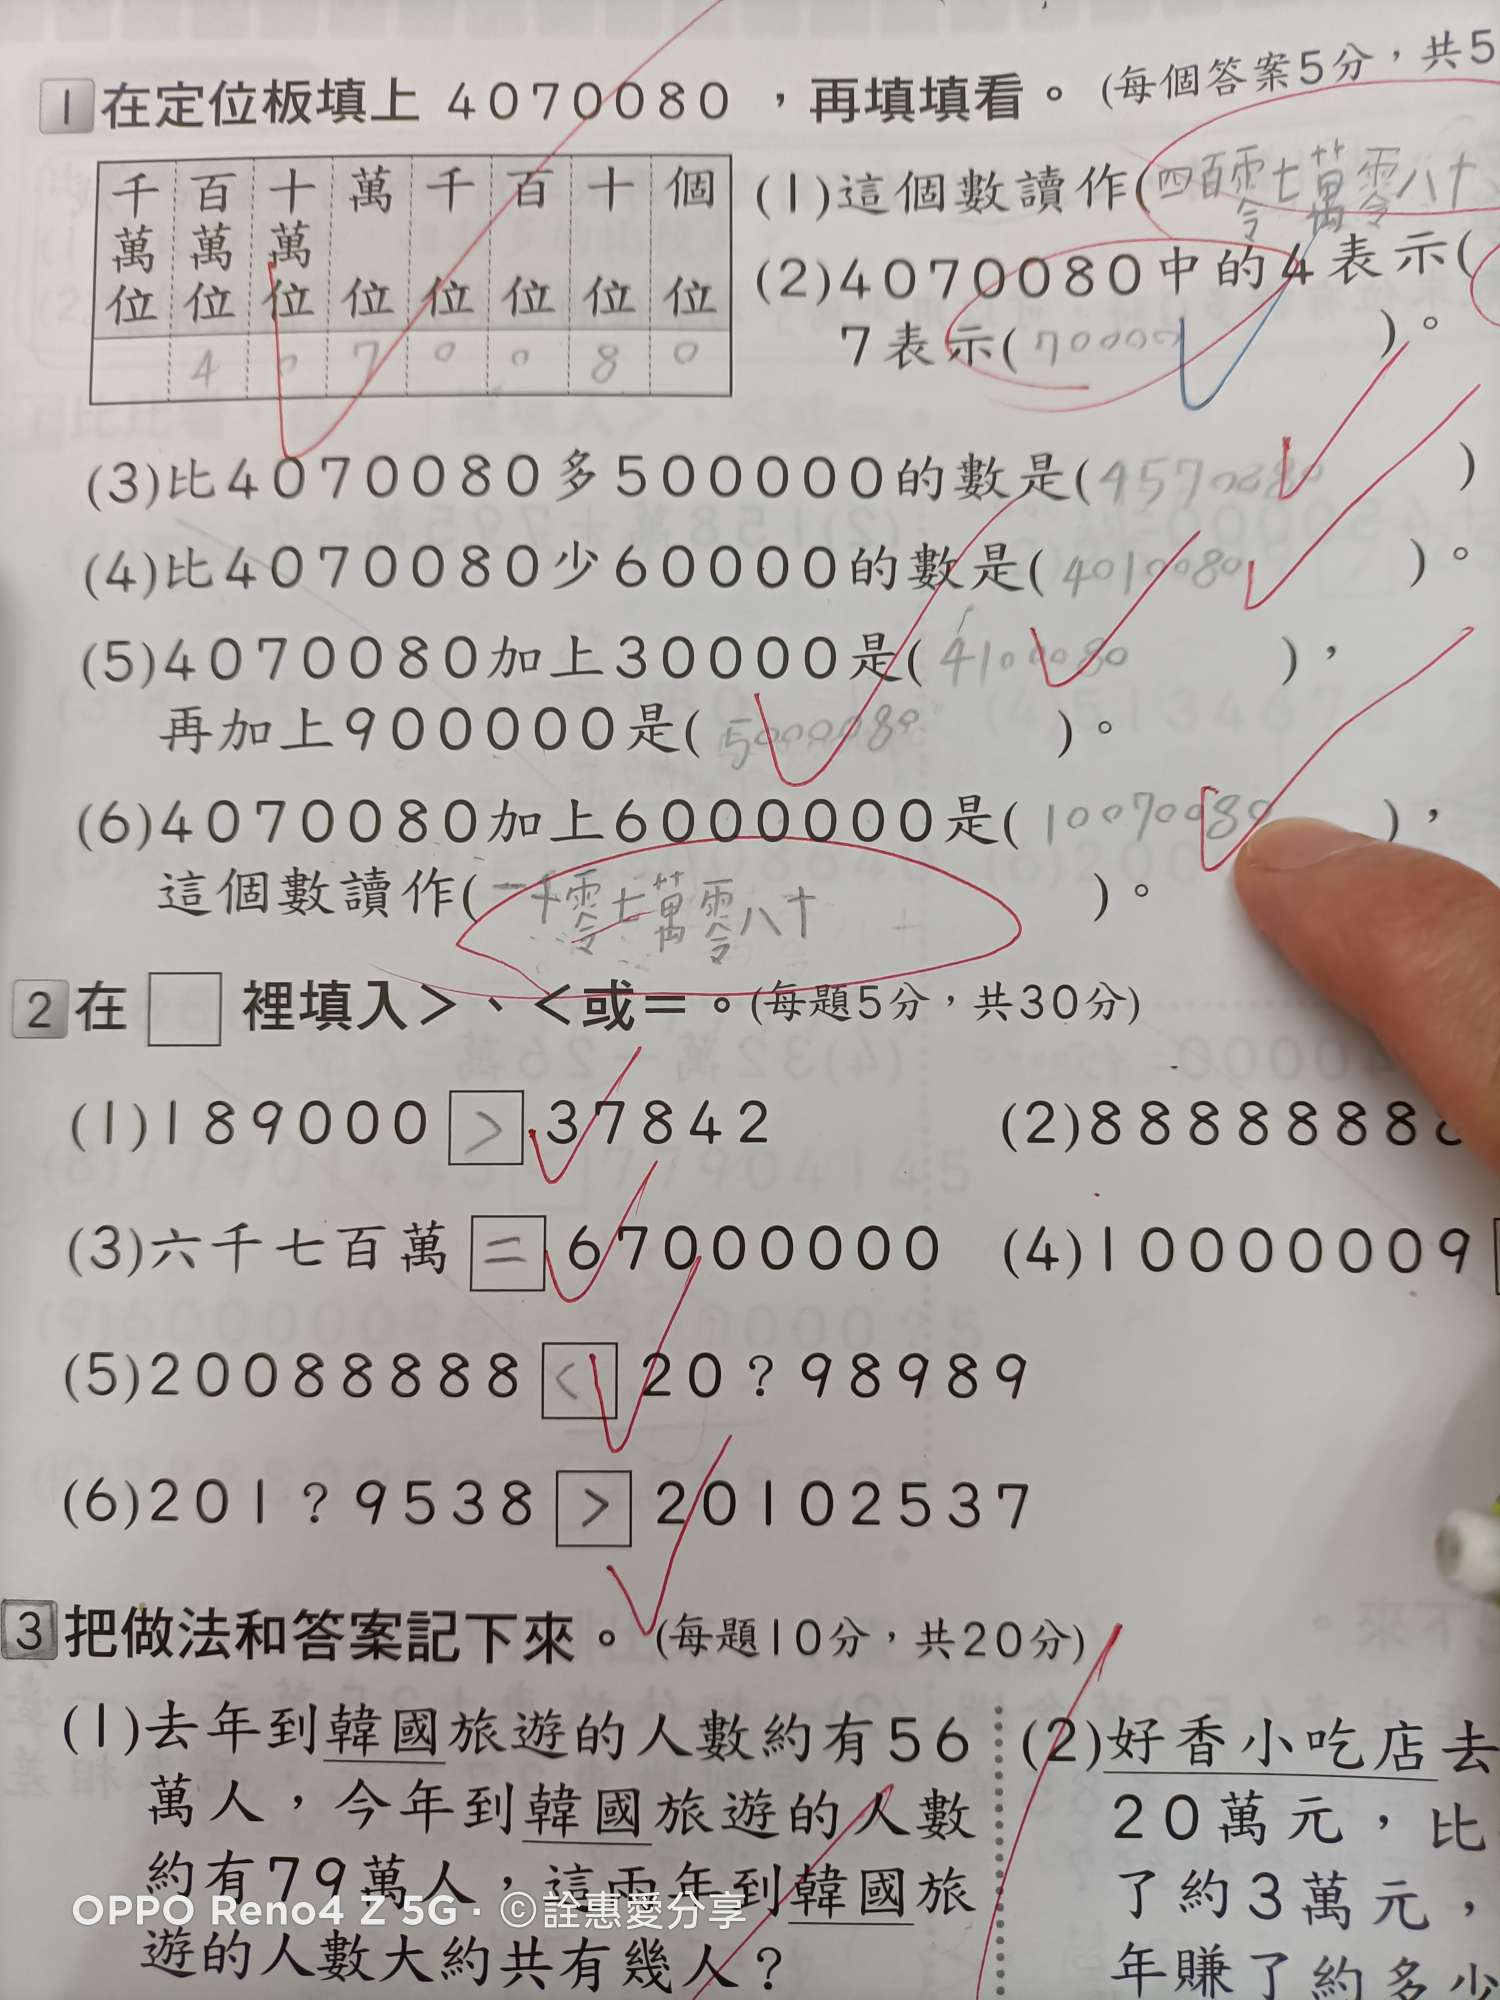 1 在定位板填上 4070080 ，再填填看。(每個答案5分，共5
千萬位 百萬位 十萬位 萬位 千位 百位 十位 個位
4 0 7 0 0 8 0
(1)這個數讀作(四百零七萬零八十
(2)4070080中的4表示(
7表示(70000)。
(3)比4070080多500000的數是(4570080)
(4)比4070080少60000的數是(4010080)。
(5)4070080加上30000是(4100080)，
再加上900000是(5000080)。
(6)4070080加上6000000是(10070080)，
這個數讀作(一千零七萬零八十)。
2 在□裡填入＞、＜或＝。(每題5分，共30分)
(1)189000 > 37842
(2)88888888
(3)六千七百萬 = 67000000
(4)10000009
(5)20088888 < 20?98989
(6)201?9538 > 20102537
3 把做法和答案記下來。(每題10分，共20分)
(1)去年到韓國旅遊的人數約有56
萬人，今年到韓國旅遊的人數
約有79萬人，這兩年到韓國旅
遊的人數大約共有幾人？
(2)好香小吃店去
20萬元，比
了約3萬元，
年賺了約多少
OPPO Reno4 Z 5G · ©詮惠愛分享